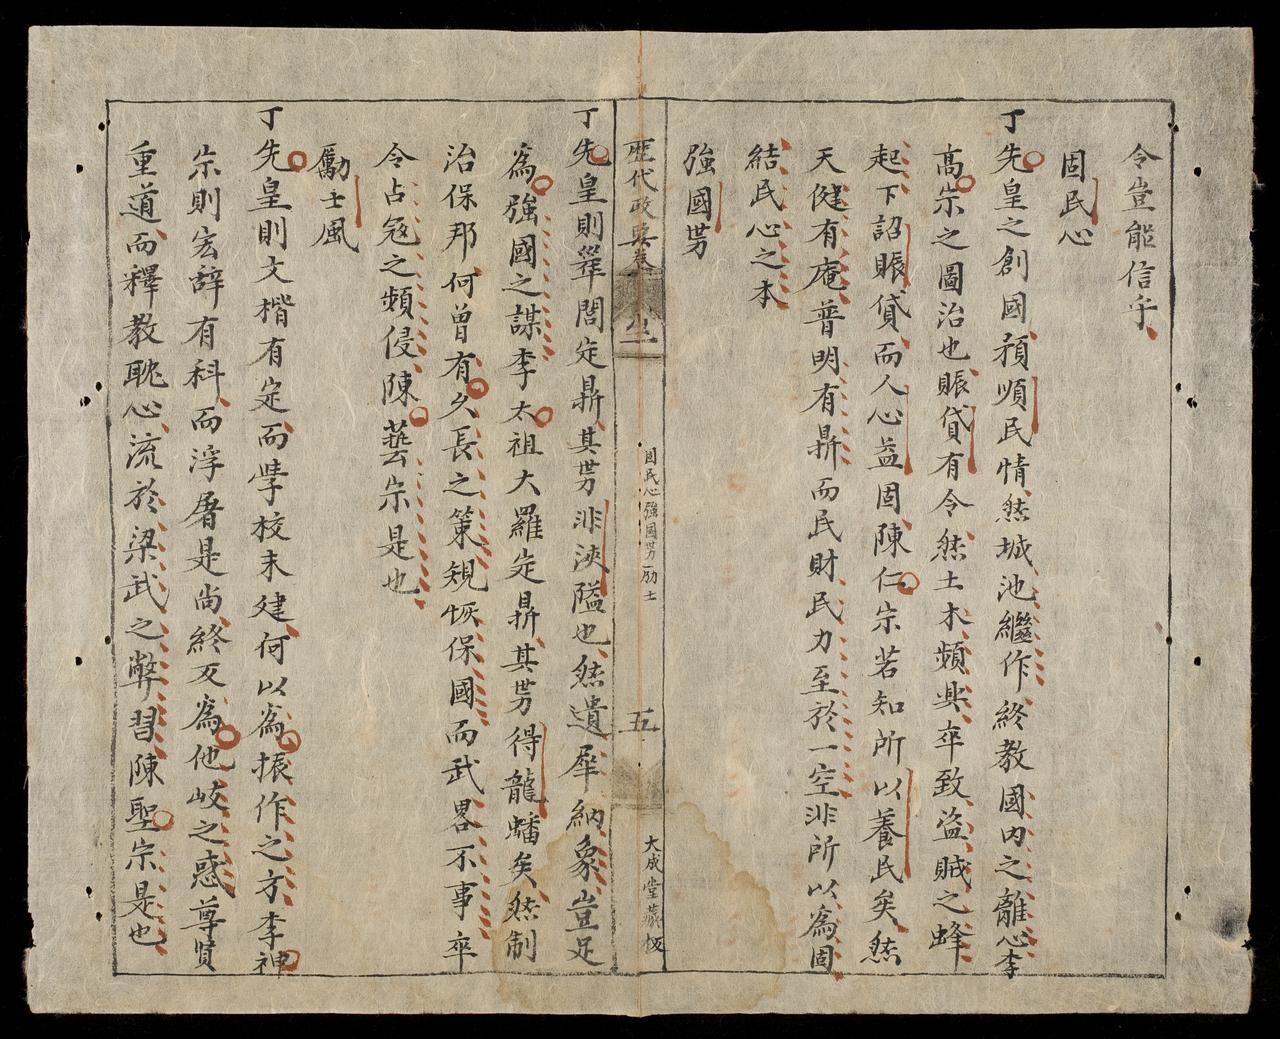 令豈能信乎
固民心
丁先皇之創國頗順民情然城池繼作終教國内之離心李
高宗之圖治也賑貸有令然土木頻興卒致盗賊之蜂
起下詔賑貸而人心益固陳仁宗若知所以養民矣然
天健有庵普明有鼎而民財民力至於一空非所以為固
結民心之本
強國势
歷代政要卷
固民心強國势励士
五
大成堂藏板
丁先皇則華閭定鼎其势非浹隘也然遺犀納象豈足
為強國之謀李太祖大羅定鼎其势得龍蟠矣然制
治保邦何曾有久長之策規恢保國而武畧不事卒
令占冦之頻侵陳藝宗是也
勵士風
丁先皇則文楷有定而學校未建何以為振作之方李神
宗則宏辞有科而浮屠是尚終不為他岐之惑尊賢
重道而釋教耽心流於梁武之弊習陳聖宗是也